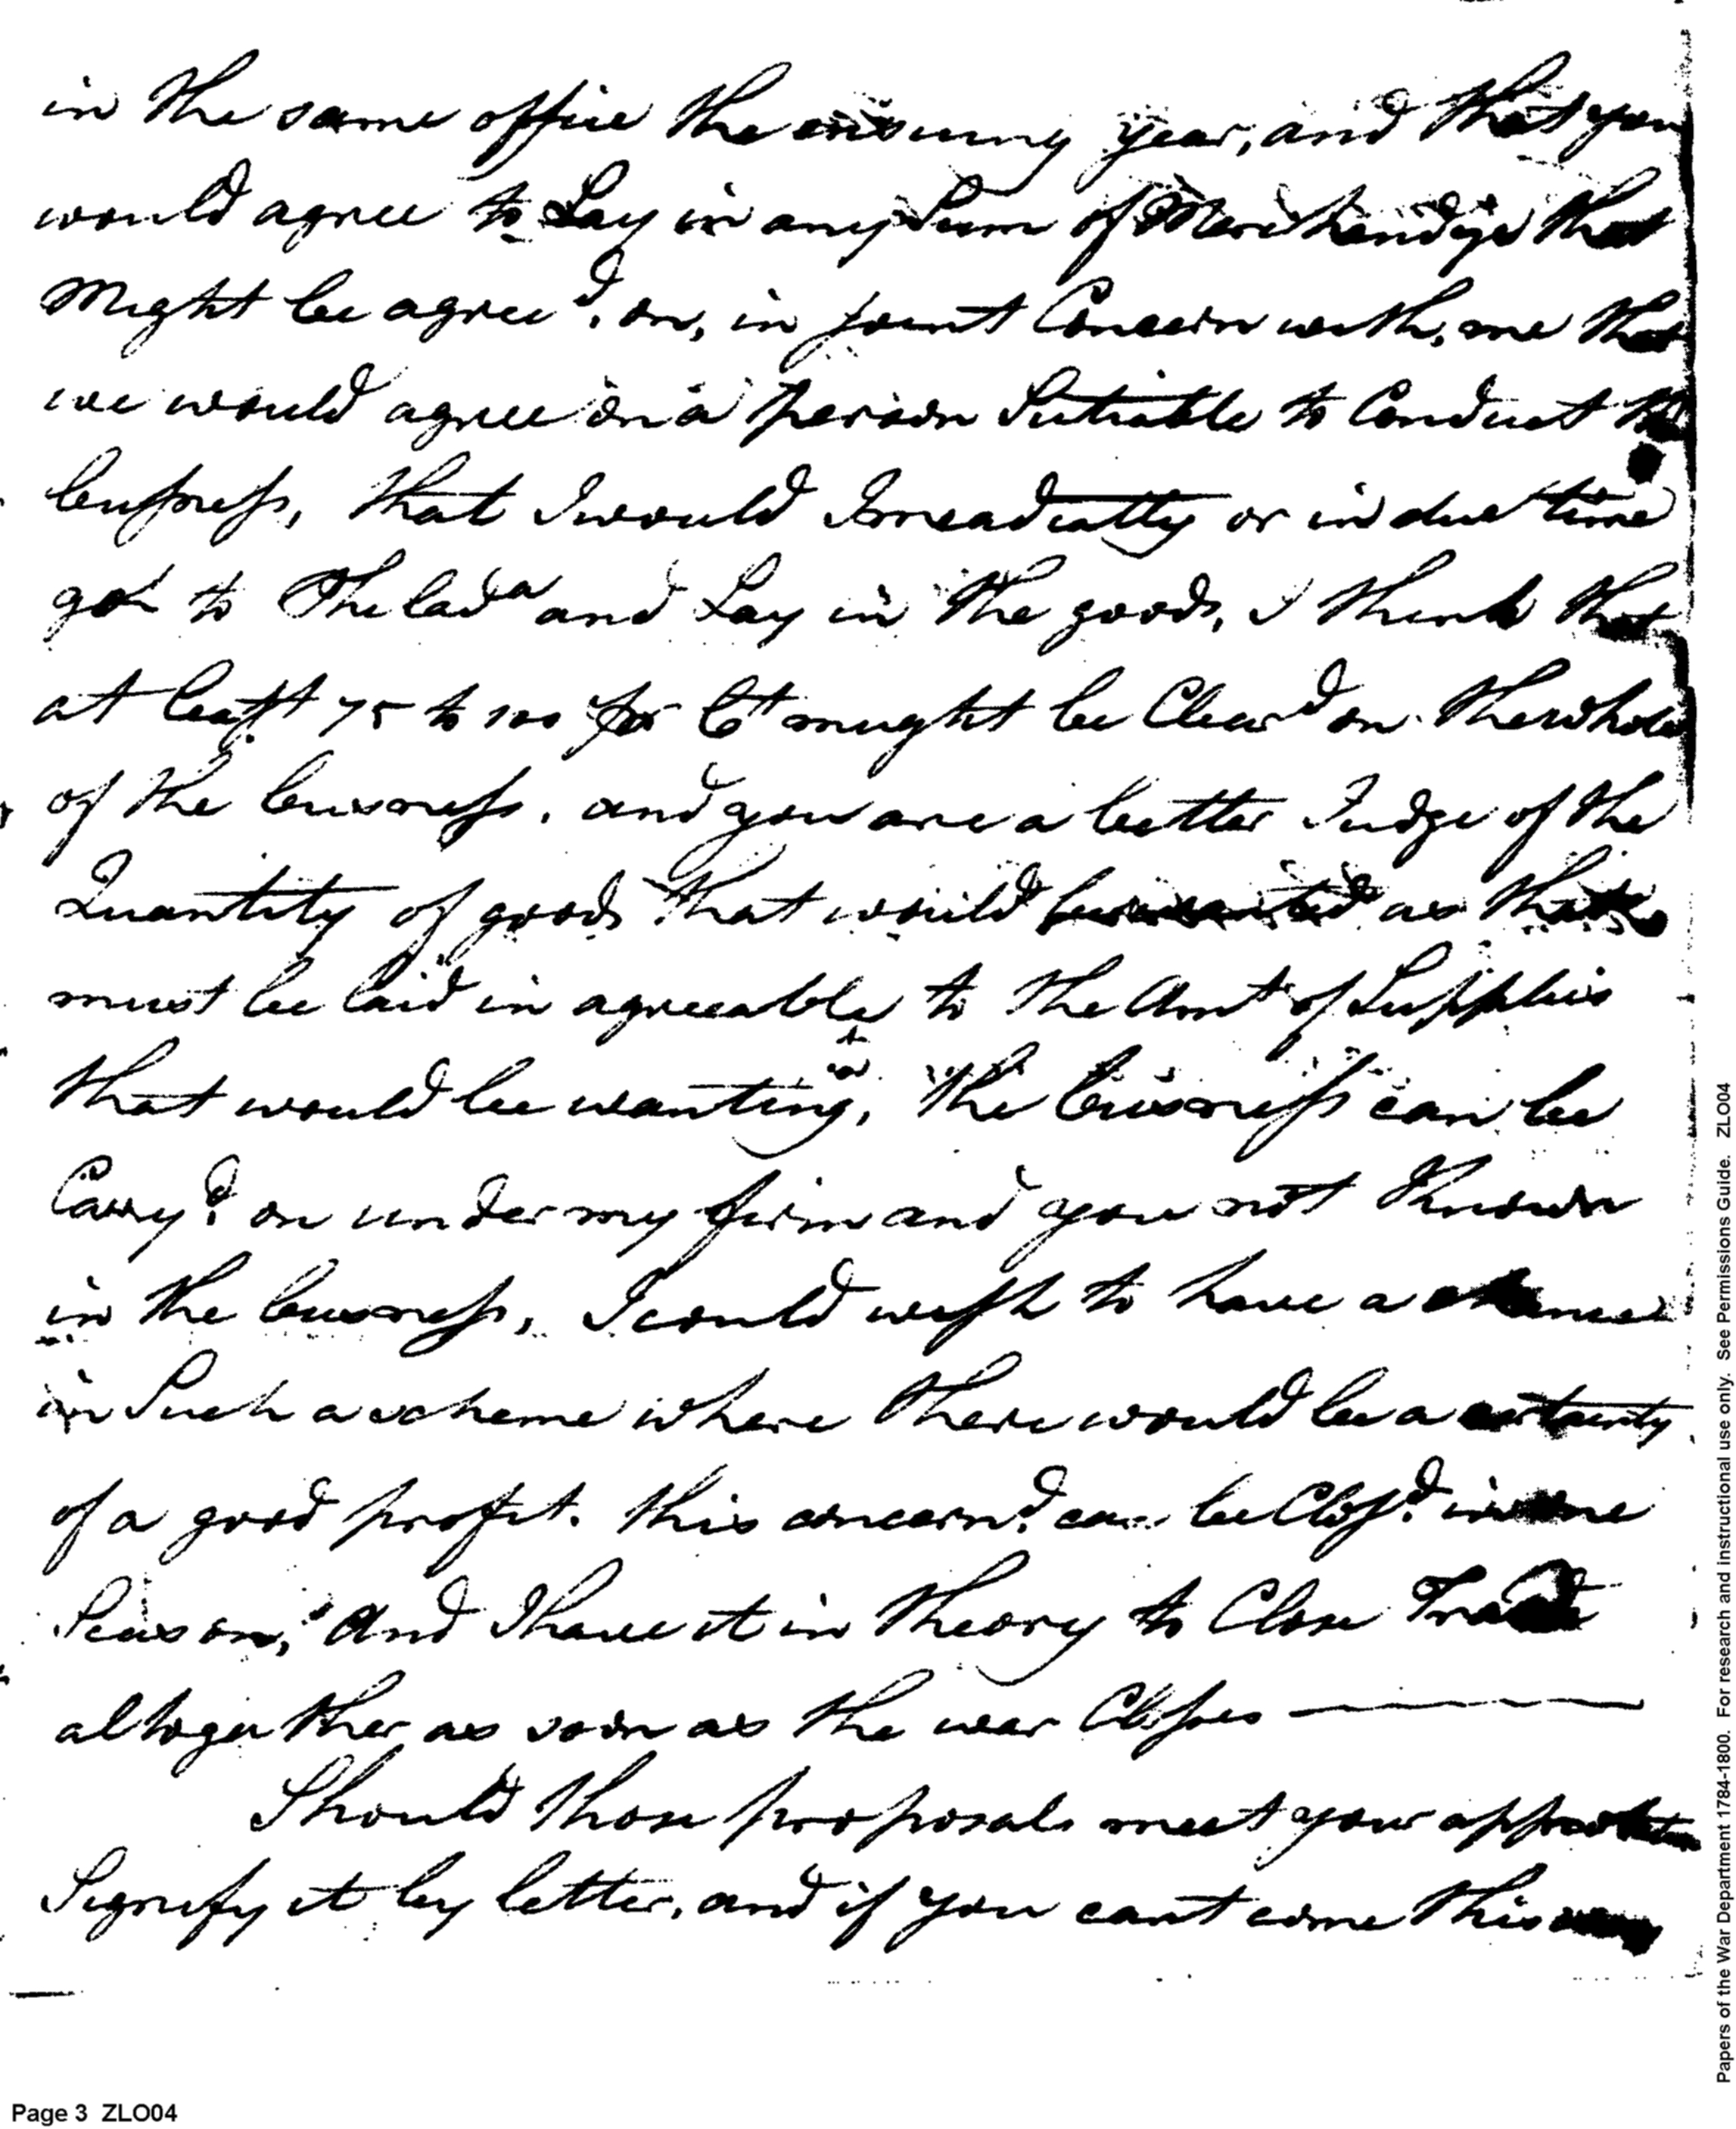 in the same office the ensuing year, and that you
would agree to Lay in any Sum of Merchandize that
Might be agree'd, on, in joint Concern with, me that
we would agree on a person Sutiable to Conduct the
busness, that I would Imeadiatly or in due time
go to Philad.a and Lay in the goods, I think that
at least 75 to 100 pr Ct might be Clear'd on the whole
of the buisness, and you are a better Judge of the
Quantity of goods that would be wanted as that
must be laid in agreeable to the Amt of Supplies
that would be wanting, the buisness can be
Carry'd on under my firm and you not Known
in the buisness, I could wish to have a chance
in Such a scheme where there would be a certainty
of a good profit. this concern'd can be Clos'd in one
Season, And I have it in theory to Close Trade
altogether as soon as the war Closses
Should those proposals meet your approbation
Signify it by letter, and if you cant come this way
Page 3 ZLO04
Papers of the War Department 1784-1800. For research and instructional use only. See Permissions Guide. ZLO04